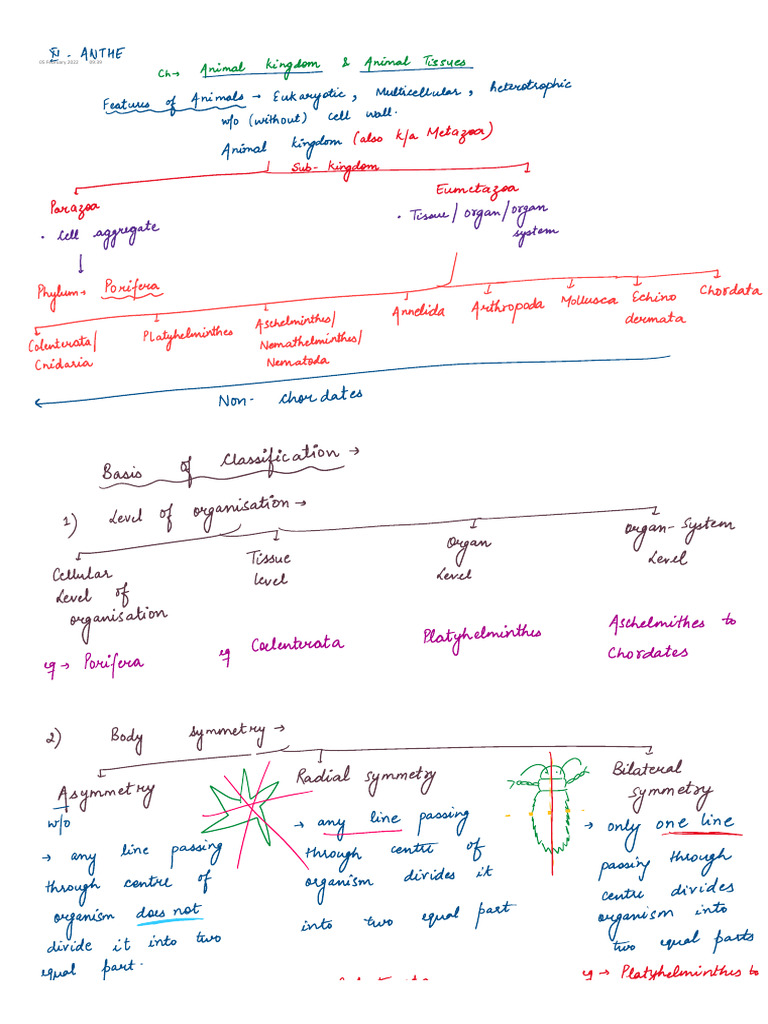 IX - ANTHE
05 February 2022 09:39
Ch→ Animal kingdom & Animal Tissues
Features of Animals → Eukaryotic, Multicellular, heterotrophic
w/o (without) cell wall.
Animal kingdom (also k/a Metazoa)
Sub-kingdom
Parazoa
Eumetazoa
• cell aggregate
• Tissue/organ/organ
system
Phylum→ Porifera
Colenterata/
Cnidaria
Platyhelminthes
Aschelminthes/
Nemathelminthes/
Nematoda
Annelida
Arthropoda
Mollusca
Echino
dermata
Chordata
Non-chordates
Basis of classification →
1) Level of organisation →
Cellular
Level of
organisation
Tissue
level
Organ
level
Organ-System
Level
eg → Porifera
eg Coelenterata
Platyhelminthes
Aschelmithes to
Chordates
2) Body symmetry →
Asymmetry
w/o
→ any line passing
through centre of
organism does not
divide it into two
equal part.
Radial symmetry
→ any line passing
through centre of
organism divides it
into two equal part
Bilateral
symmetry
→ only one line
passing through
centre divides
organism into
two equal parts
eg → Platyhelminthes to